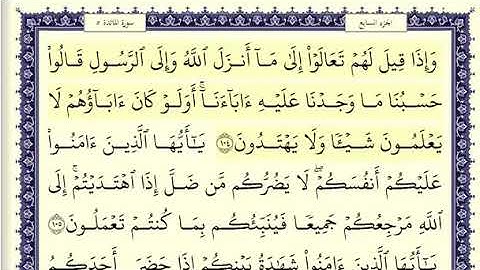 الجزء السابع
سورة المائدة ٥
وَإِذَا قِيلَ لَهُمْ تَعَالَوْا۟ إِلَىٰ مَآ أَنزَلَ ٱللَّهُ وَإِلَى ٱلرَّسُولِ قَالُوا۟
حَسْبُنَا مَا وَجَدْنَا عَلَيْهِ ءَابَآءَنَآ ۚ أَوَلَوْ كَانَ ءَابَآؤُهُمْ لَا
يَعْلَمُونَ شَيْـًٔا وَلَا يَهْتَدُونَ ١٠٤ يَـٰٓأَيُّهَا ٱلَّذِينَ ءَامَنُوا۟
عَلَيْكُمْ أَنفُسَكُمْ ۖ لَا يَضُرُّكُم مَّن ضَلَّ إِذَا ٱهْتَدَيْتُمْ ۚ إِلَى
ٱللَّهِ مَرْجِعُكُمْ جَمِيعًا فَيُنَبِّئُكُم بِمَا كُنتُمْ تَعْمَلُونَ ١٠٥
يَـٰٓأَيُّهَا ٱلَّذِينَ ءَامَنُوا۟ شَهَـٰدَةُ بَيْنِكُمْ إِذَا حَضَرَ أَحَدَكُمُ